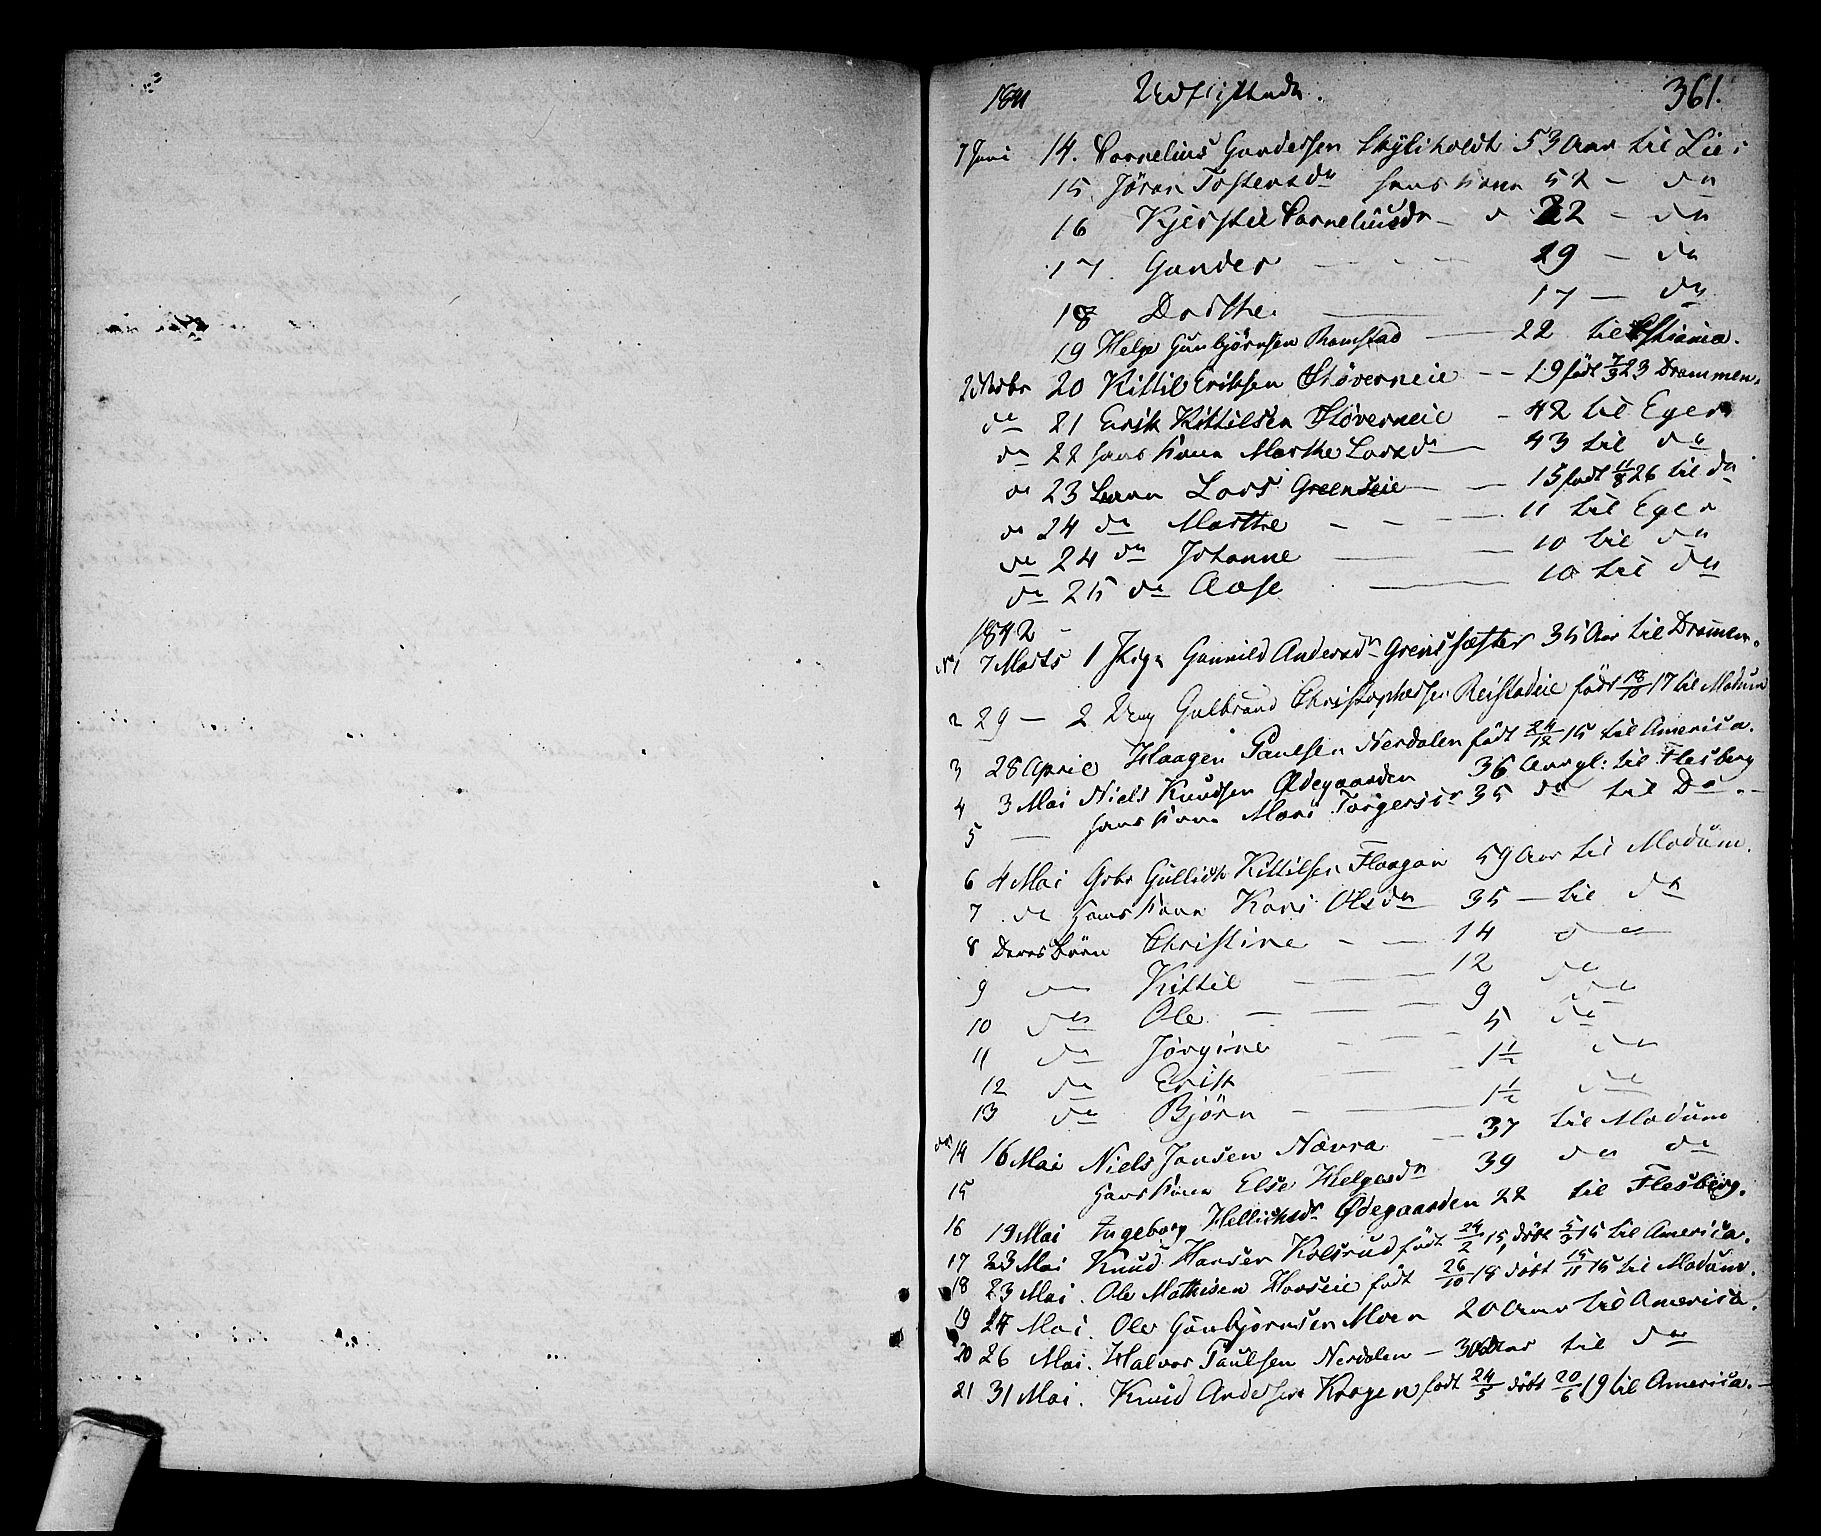 1841 Udflyttede. 361.
7 Juni 14. Cornelius Gundersen 53 Aar til Lie
15 Jøran Tostensdr hans Kone 52 - do
16 Kjerstie Corneliusdr - 22 - do
17. Gunder - - - 29 - do
18 Dorthe. 17 - do
19 Helge Gunbjørnsen Ramstad 22 til Christiania.
20 Kittil Eriksen Støverneie - - 19 født 7/3 23 Drammen.
do 21 Erik Kittilsen Støverneie - 42 til Eger
do 22 hans Kone Marthe Larsdr 43 til do
do 23 Lars Greenseie - 15 født 11/8 26 til do
do 24 do Marthe - - - 11 til Eger
do 24 do Johanne - 10 til do
do 25 do Aase - 10 til do
1842 -
No 1 7 Marts 1 Pige Gunnild Andersdr 35 Aar til Dramen.
2 29 - 2 Ung Gulbrand Christophersen Reistadeie født 18/10 17 til Modum
3 28 April Haagen Paulsen Nerdalen født 24/12 15 til America.
4 3 Mai Niels Knudsen Ødegaarden 36 Aar gl: til Flesberg
5 - hans Kone Mari Torgersdr 35 do til Do. -
6 4 Mai Gbr Gullich Kittilsen Flaagan 59 Aar til Modum.
7 do hans Kone Kari Olsdr 35 - til do
8 Deres Børn Christine - - 14 do
9 do Kittil - 12 do
10 do Ole - 9 do
11 do Jørgine - 5 do
12 do Erik - 1½ do
13 do Bjørn - 1½ do
do 14 16 Mai Niels Jansen Nævra - 37 til Modum
15 hans Kone Else Helgesdr 39 do do
16 19 Mai Ingeborg Hellichsdr Ødegaarden 22 til Flesberg.
17 23 Mai Knud Hansen Kolsrud født 24/2 15, døbt 5/3 15 til America.
18 23 Mai. Ole Mathisen Horseie født 26/10 18 døbt 15/11 15 til Modum.
19 24 Mai. Ole Gunbjørnsen Moen 20 Aar til America.
20 26 Mai. Halvor Paulsen Nerdalen - 30 Aar til do
21 31 Mai. Knud Andersen Kragen født 24/5 døbt 20/6 19 til America. -